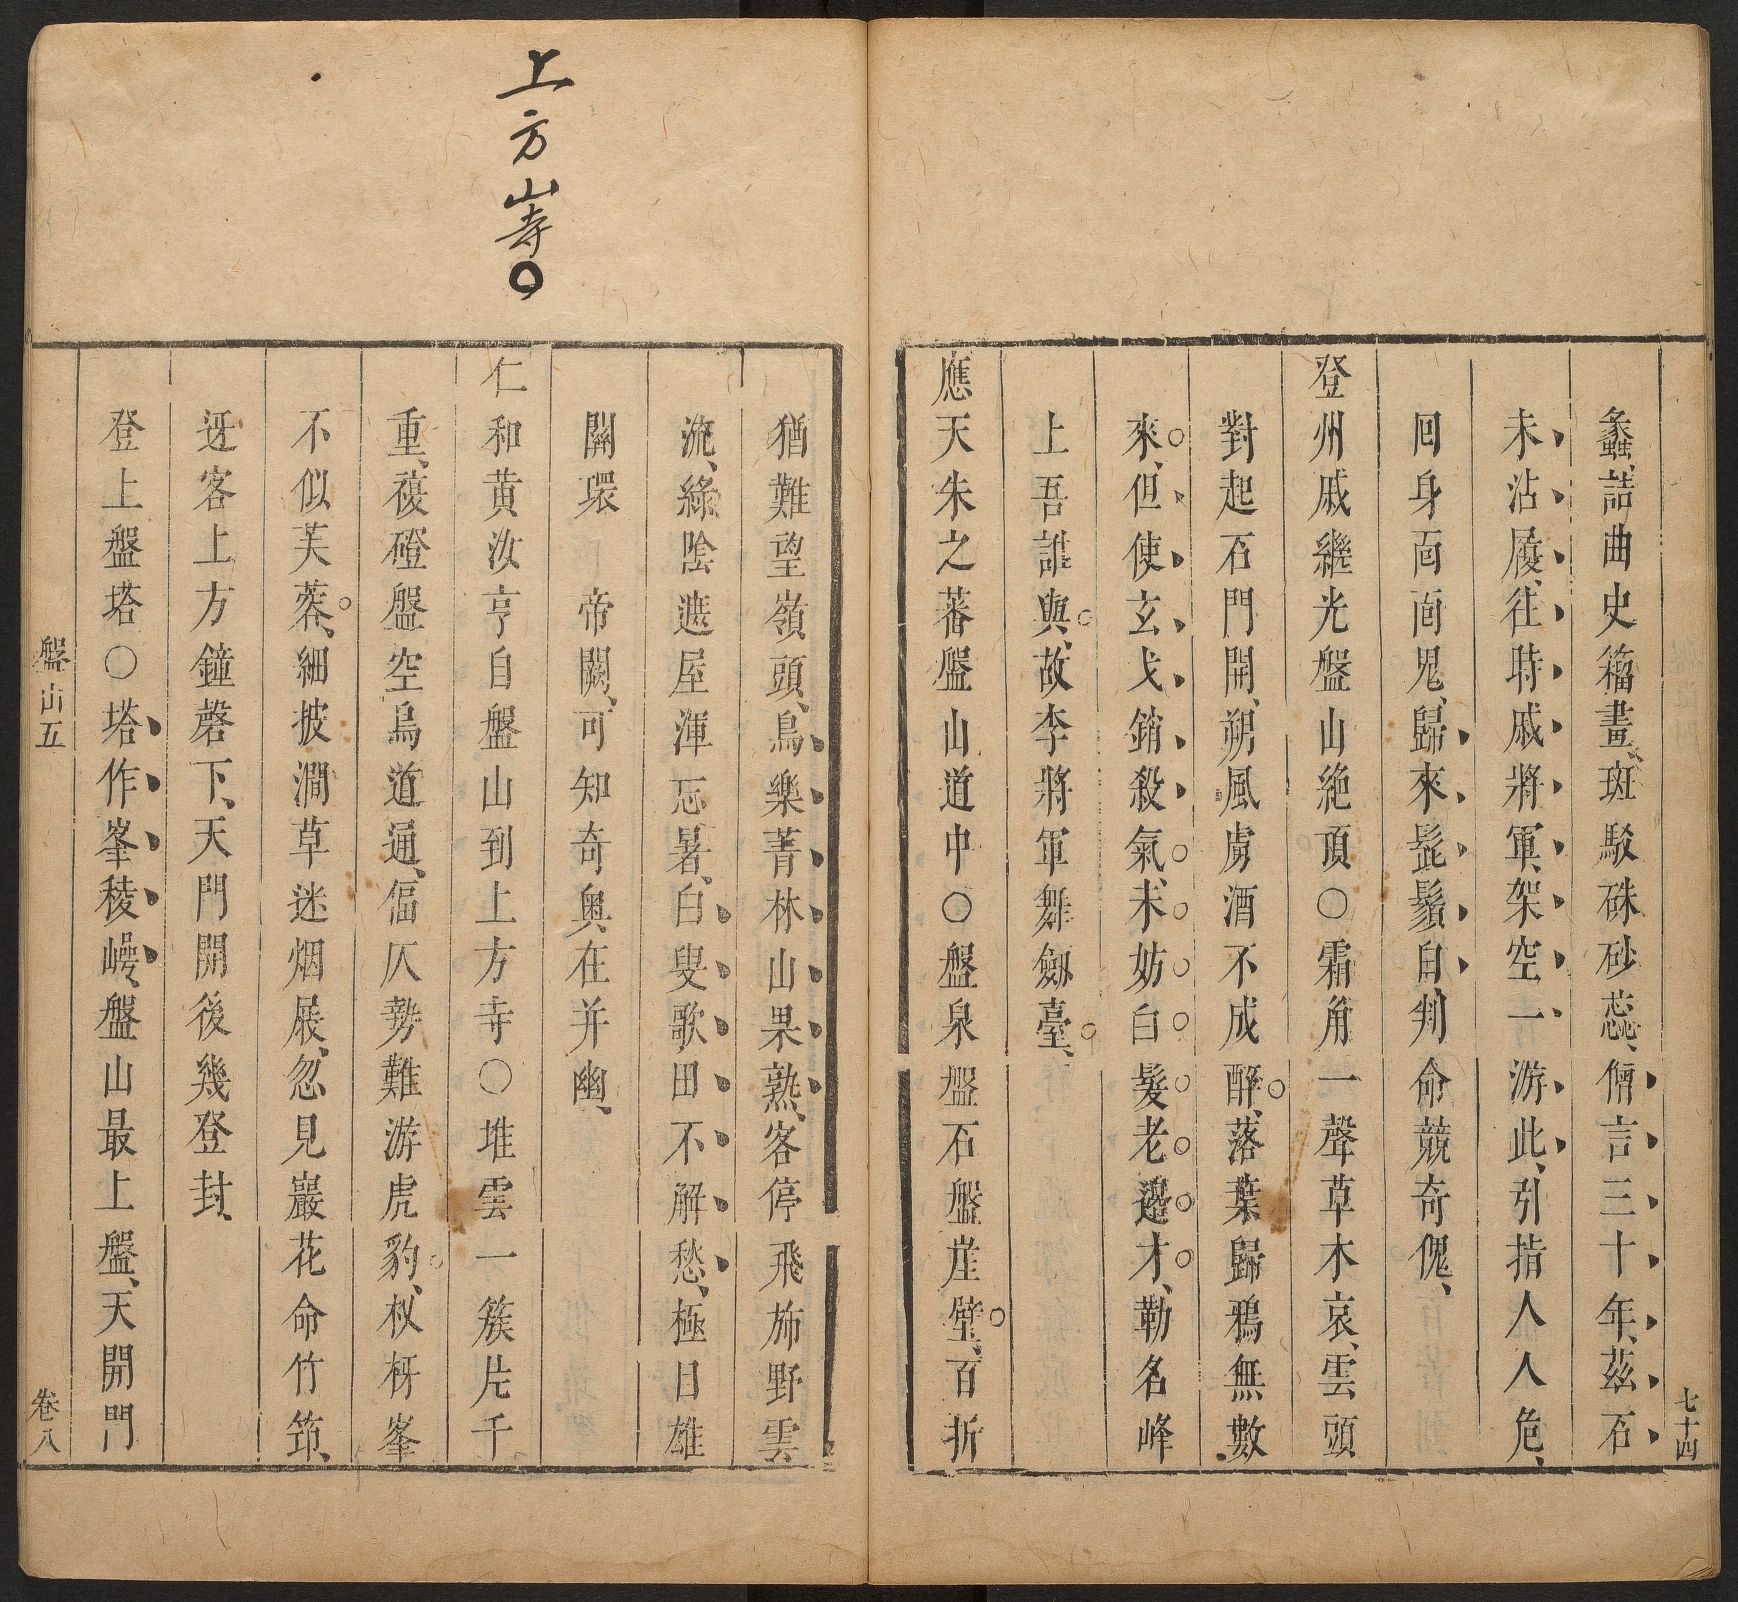 七十四
蠡、詰曲史籀畫、斑駁硃砂蕊、僧言三十年、茲石
未沾屐、往時戚將軍、架空一游此、引指人人危、
回身面面鬼、歸來髭鬚白、判命競奇傀、
登州戚繼光盤山絶頂○霜角一聲草木哀、雲頭
對起石門開、朔風虜酒不成醉、落葉歸鴉無數
來、但使玄戈銷殺氣、未妨白髮老邊才、勒名峰
上吾誰與、故李將軍舞劔臺、
應天朱之蕃盤山道中○盤泉盤石盤崖壁、百折
上方山寺○
猶難望嶺頭、鳥樂菁林山果熟、客停飛斾野雲
流、綠陰遮屋渾忘暑、白叟歌田不解愁、極目雄
關環帝闕、可知奇奧在并幽、
仁和黃汝亨自盤山到上方寺○堆雲一簇片千
重、複磴盤空鳥道通、偪仄勢難游虎豹、杈枒峯
不似芙蓉、細披澗草迷烟屐、忽見巖花命竹筇、
迓客上方鐘磬下、天門開後幾登封、
登上盤塔○塔作峯稜嶼、盤山最上盤、天開門
盤山五
卷八